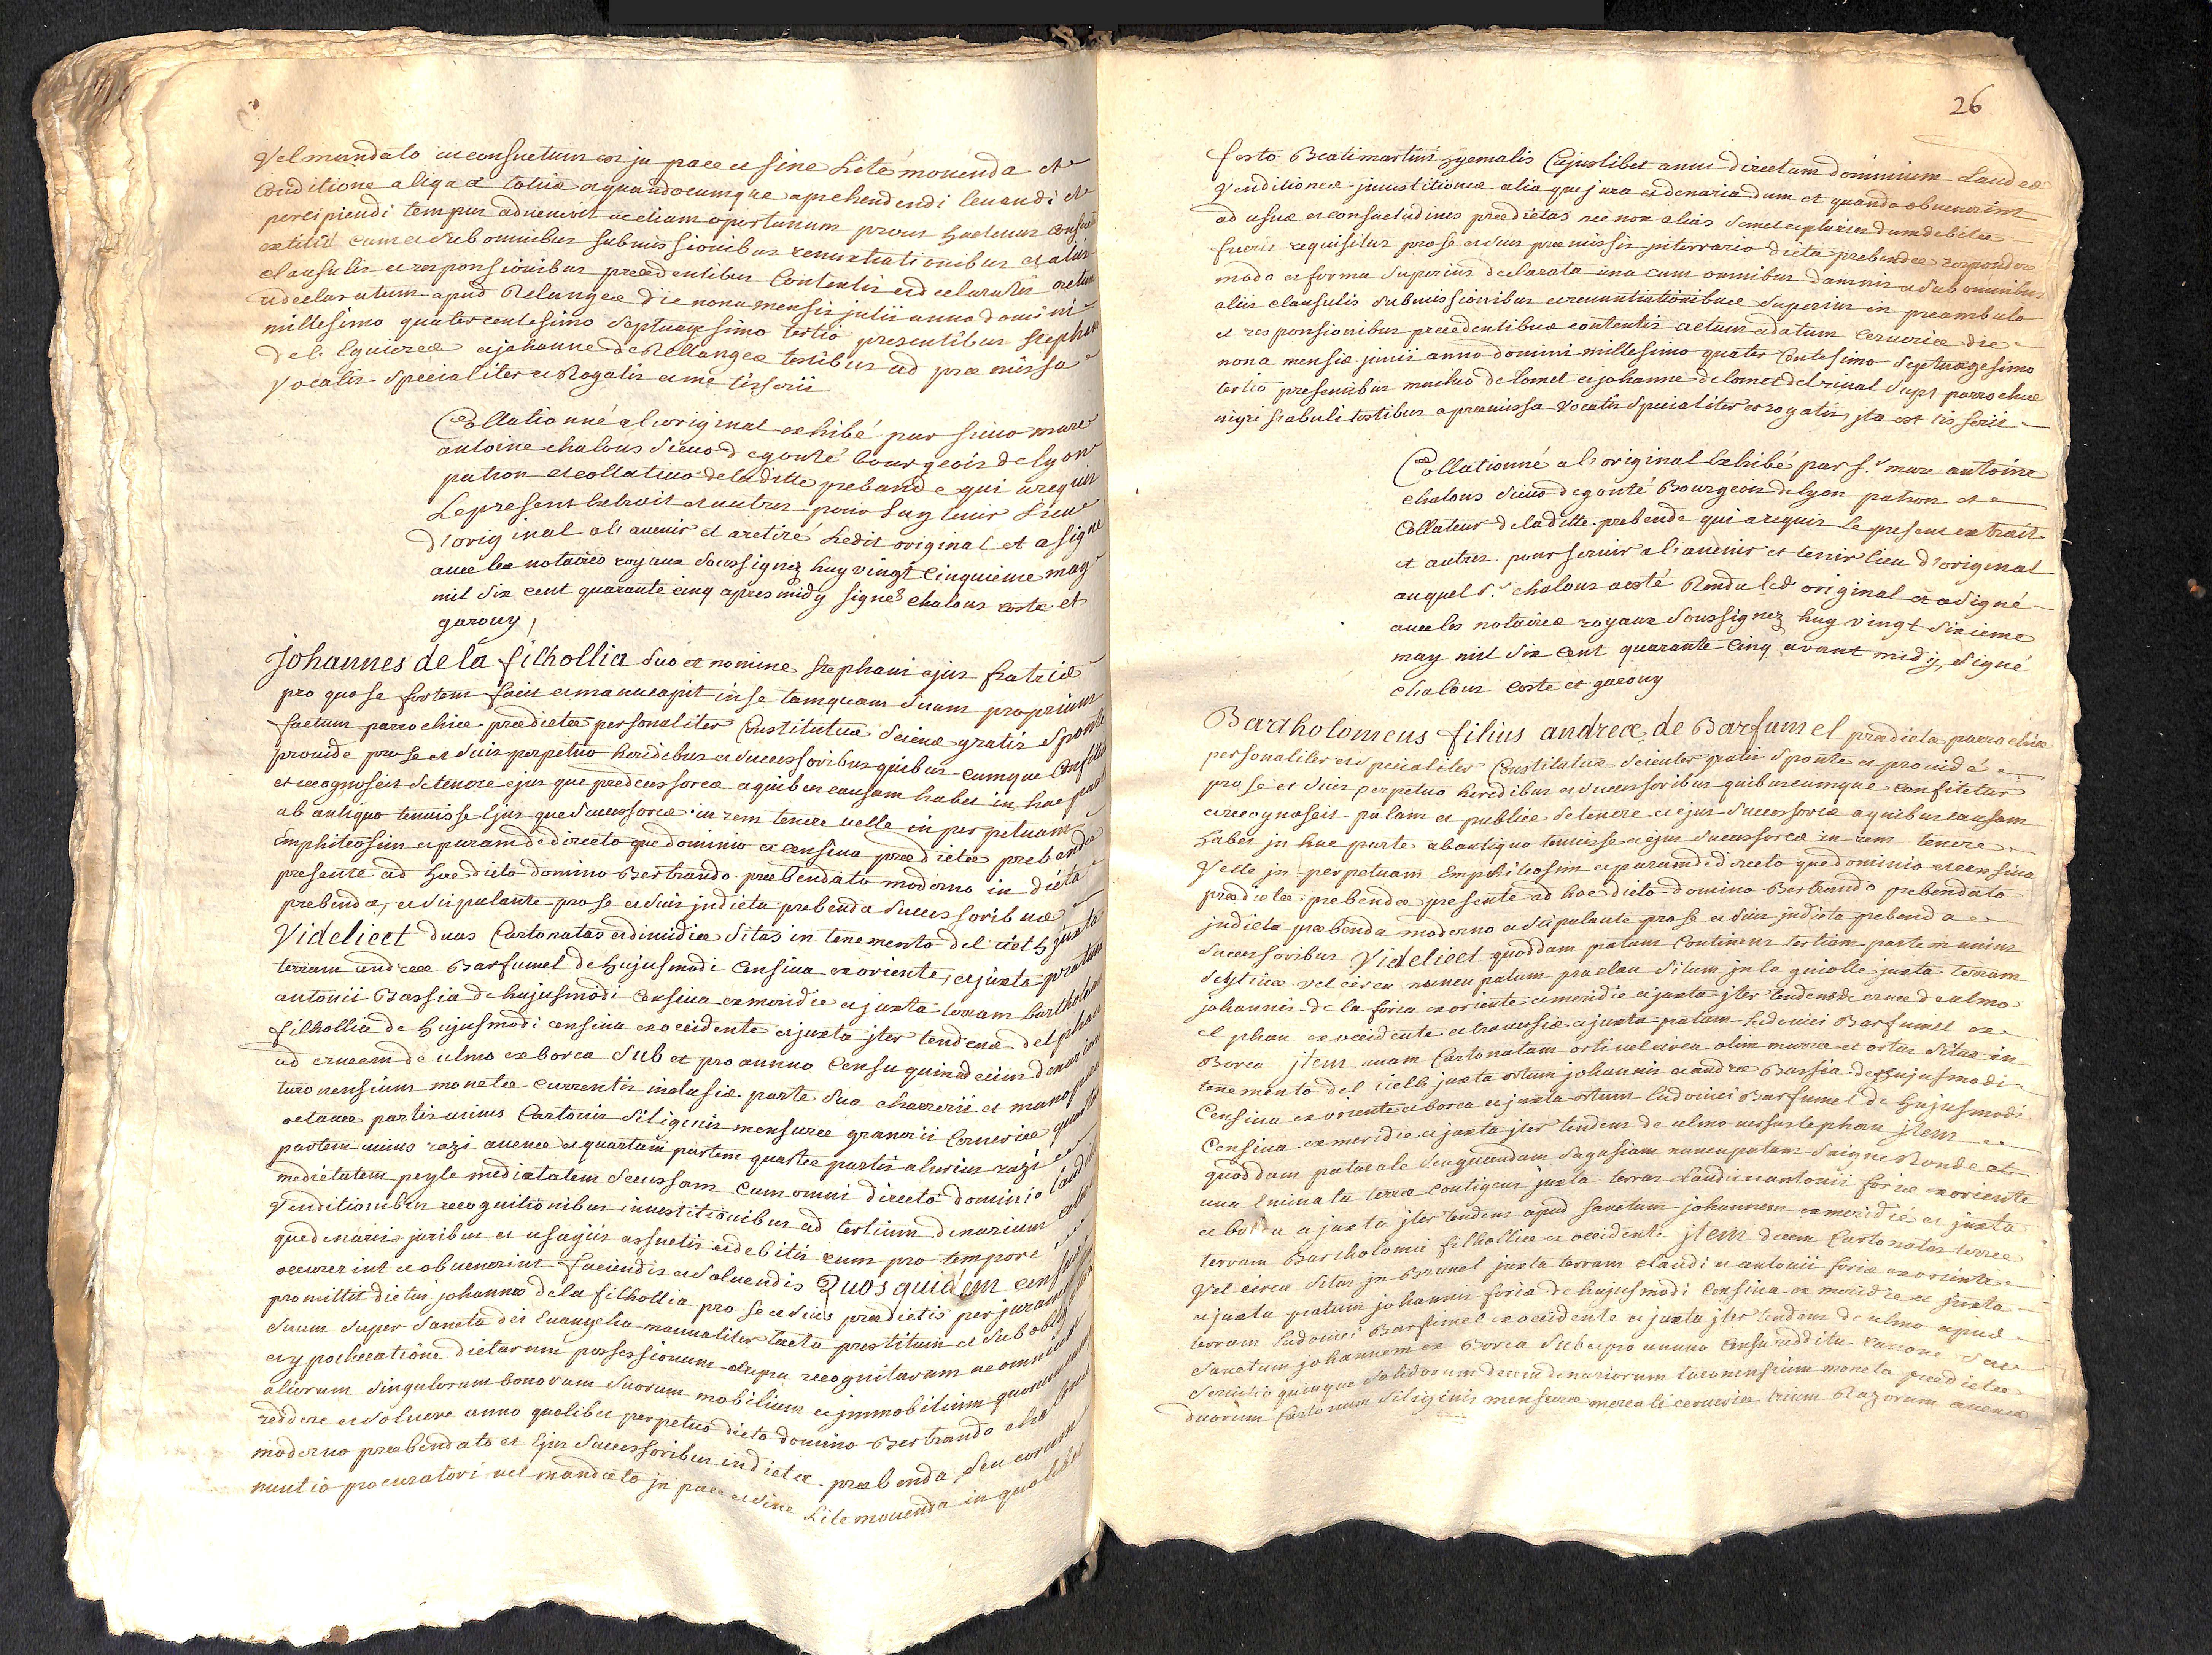 Vel mandato ac consuetum est jn pace et sine Lite mouenda et
Conditione aliqua totiæ ac quandocumque aprehendendi leuandi et
percipiendi tempus aduenerit ac etiam oportunum prout hactenus
extitit cum et sub omnibus submissionibus renuntiationibus et aliis
clausulis et responsionibus præcedentibus Contentis et declaratis actum
apud Relangeæ die nona mensis julii anno domini
millesimo quater centesimo septuagesimo tertio presentibus stephano
del Eguiereæ et johanne de Rellangeæ testibus ad præmissa
Vocatis specialiter et Rogatis et me tisserii
Collationné al original exhibé par sieur marc
antoine chalous sieur degouté bourgeois de lyon
patron et collateur de laditte prebande qui a requis
Le present Extrait et autres pour Luy tenir Lieu
d'original al auenir et a retiré Ledit original et a signé
auec les notaires royaux soussignez huy vingt Cinquieme may
mil six cent quarante cinq apres midy signés chalous coste et
garouy,
Johannes de la filhollia suo et nomine stephani ejus fratris
pro quo se fortem facit et manucapit in se tamquam suum proprium
factum parrochiæ prædictæ personaliter Constitutus sciens gratis sponte
prouide pro se et suis perpetuo heredibus et successoribus quibuscumque
et recognoscit se tenere ejus que predecessores a quibus causam habet in hac
ab antiquo tenuisse Ejus que successores in rem tenere uelle in perpetuam
Emphiteosim et puram de directo que dominio et censiua prædictæ prebendæ
presente ad hoc dicto domino Bertrando præbendato moderno in dicta
prebenda, et stipulante pro se et suis in dicta prebenda successoribus
Videlicet duas Cartonatas et dimidiæ sitas in tenemento del juxta
terram andreæ Barfumel de hujusmodi Censiua ex oriente, et juxta pratum
antonii Bassia de hujusmodi Censiua ex meridie et juxta terram
filhollia de hujusmodi censiua ex occidente et juxta jter tendens del
ad crucem de ulmo ex borea sub et pro annuo Censu quindecim denariorum
turonensium monetæ currentis inclusis parte sua charrerii et
octauæ partis unius Cartonis siliginis mensuræ granerii Ceruieriæ
partem unius razi auenæ et quartam partem quartæ partis alterius razi
medietatem peyle medietatem secussam Cum omni directo dominio
Venditionibus recognitionibus inuestitionibus ad tertium denarium
que denariis juribus et usagiis assuetis et debitis cum pro tempore
occurrerint et obuenerint faciendis et soluendis Quosquidem
promittit dictus johannes dela filhollia pro se et suis prædictis per juramentum
suum super sancta dei Euangelia manualiter tacta prestitum et sub
et ypothecatione dictarum possessionum supra recognitarum ac omnium
aliorum singulorum bonorum suorum mobilium et jmmobilium
reddere et soluere anno quolibet perpetuo dicto domino Bertrando
moderno præbendato et Ejus successoribus in dicta præbenda, seu eorum
nuntio procuratori uel mandato jn pace et sine Lite mouenda in quolibet
26
festo Beati martini hyemalis Cujuslibet anni directum dominium Laudes
Venditiones jnuestitiones alia que jura et denaria dum et quando obuenerint
ad usus et consuetudines prædictas nec non alias semel et pluries dum debite
fuerit requisitus pro se et suis præmissis in terrario dictæ prebendæ respondere
modo et forma superius declarata una cum omnibus damnis et sub omnibus
aliis clausulis submissionibus et renuntiationibus superius in preambulo
et responsionibus præcedentibus contentis actum et datum Ceruieriæ die
nona mensis junii anno domini millesimo quater Centesimo septuagesimo
tertio presentibus de lomet et johanne de lomet parrochiæ
nigri stabuli testibus a præmissa vocatis specialiter et rogatis, jta est tisserii
Collationné al original Exhibé par s.r marc antoine
chalous sieur degouté Bourgeois de lyon patron et
Collateur de laditte prebende qui a requis le present extrait
et autres pour seruir al auenir et tenir lieu d'original
auquel s.r chalous a esté Rendu led original et a signé
auec les notaires royaux soussignez huy vingt sixieme
may mil six Cent quarante Cinq avant midy, signé
chalous coste et garouy
Bartholomeus filius andreæ de Barfumel prædicta parrochiæ
personaliter et specialiter Constitutus scienter gratis sponte et prouidé
pro se et suis perpetuo heredibus et successoribus quibuscumque confitetur
et recognoscit palam et publice se tenere et ejus successores a quibus causam
habet jn hac parte ab antiquo tenuisse et ejus successores in rem tenere
Velle jn perpetuam Emphiteosim et puram de directo que dominio et censiua
prædictæ prebendæ presente ad hoc dicto domino Bertrando prebendato
jn dicta præbenda moderno et stipulante pro se et suis jn dicta prebenda
successoribus Videlicet quoddam pratum Continens tertiam partem unius
vel circa nuncupatum situm jn la guiolle juxta terram
johannis de la foria ex oriente et meridie et juxta jter tendens de cruce de ulmo
el phau ex occidente et et juxta pratum ludouici Barfumel ex
Borea jtem unam Cartonatam orti uel circa olim et ortus situs in
tenemento del juxta ortum johannis et andreæ Bassia de hujusmodi
Censiua ex oriente et borea et juxta ortum ludouici Barfumel de hujusmodi
Censiua ex meridie et juxta jter tendens de ulmo uersus le phau jtem
quoddam paturale seu quemdam nuncupatum saigne Ronde et
una Eminata terræ contiguis juxta terras claudii et antonii foriæ ex oriente
et borea et juxta jter tendens apud sanctum johannem ex meridié et juxta
terram Bartholomei filholliæ ex occidente jtem decem Cartonatas terræ
Vel circa sitas jn Brunel juxta terram claudii et antonii foriæ ex oriente
et juxta pratum johannis foriæ de hujusmodi Censiua ex meridie et juxta
terram Ludouici Barfumel ex occidente et juxta jter tendens de ulmo apud
sanctum johannem ex Borea sub et pro annuo Censu redditu
seruitio quinque solidorum decem denariorum turonensium moneta prædictæ
duorum Cartonum siliginis mensuræ mercati ceruieriæ trium Razorum auenæ